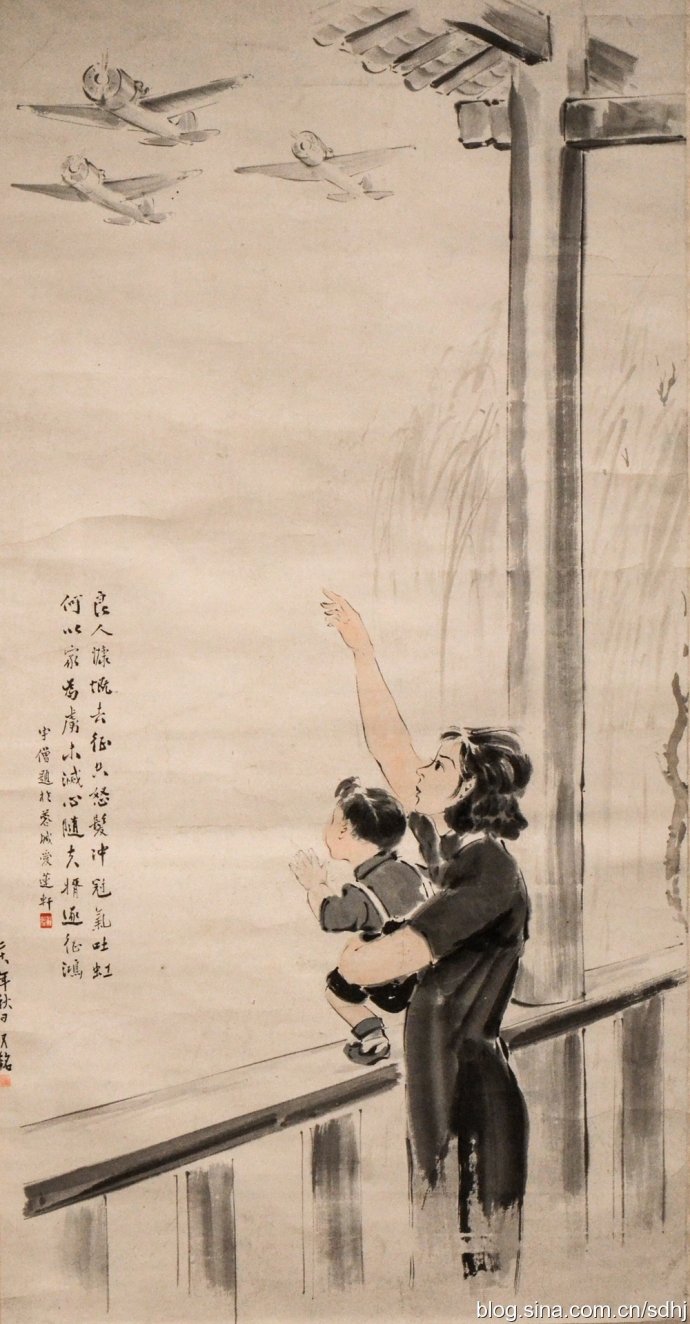 良人慷慨去征怒髮冲冠氣吐虹
何以家為虜未滅心隨夫婿逐征鴻
宇僧題於蓉城愛蓮軒
年秋日
blog.sina.com.cn/sdhj